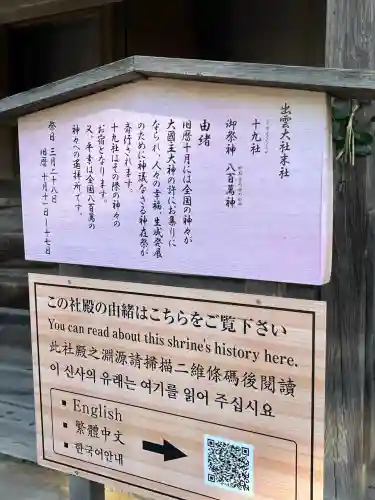 出雲大社末社
十九社
御祭神 八百萬神
由緒
旧暦十月には全国の神々が
大國主大神の許にお集りに
なられ、人々の幸福、生成発展
のために神議なさる神在祭が
斎行されます。
十九社はその際の神々の
お宿となります。
又、平素は全国八百萬の
神々への遥拝所です。
祭日 三月二十八日
旧暦 十月十一日〜十七日
この社殿の由緒はこちらをご覧下さい
You can read about this shrine's history here.
此社殿之淵源請掃描二維條碼後閱讀
이 신사의 유래는 여기를 읽어 주십시요
■ English
■ 繁體中文
■ 한국어안내